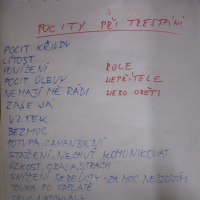 POCITY PŘI TRESTÁNÍ
POCIT KŘIVDY
LÍTOST
PONÍŽENÍ
POCIT ÚLEVY
NEMAJÍ MĚ RÁDI
ZASE JÁ
VZTEK
BEZMOC
POTUPA, ZAHANBENÍ
STAŽENÍ, NECHUT KOMUNIKOVAT
ÚZKOST, OBAVA, STRACH
SNÍŽENÍ SEBEÚCTY - ZA MOC NESTOJÍM
TOUHA PO ODPLATĚ
ROLE
NEPŘÍTELE
NEBO OBĚTI